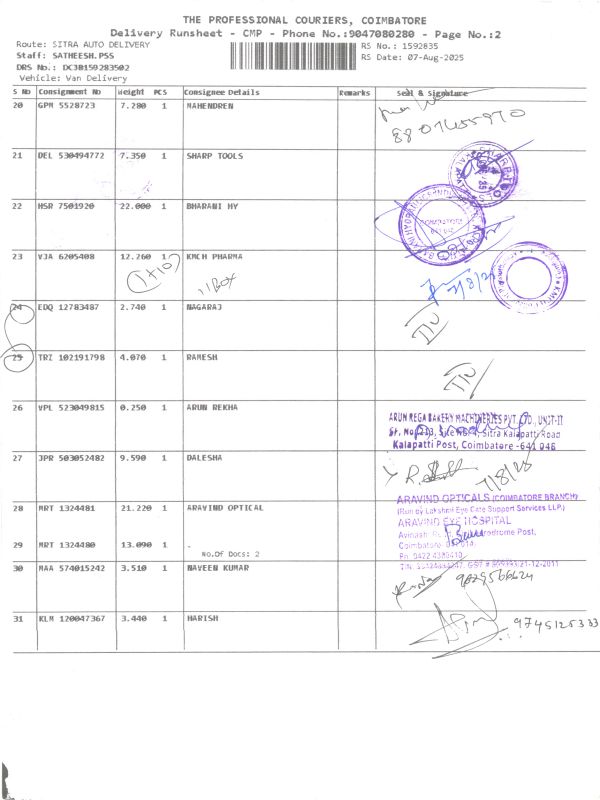 THE PROFESSIONAL COURIERS, COIMBATORE
Delivery Runsheet - CMP - Phone No.:9047080280 - Page No.:2
Route: SITRA AUTO DELIVERY RS No.: 1592835
Staff: SATHEESH.PSS RS Date: 07-Aug-2025
DRS No.: DC3B159283502
Vehicle: Van Delivery
S No Consignment No Weight PCS Consignee Details Remarks Seal & Signature
20 GPM 5528723 7.280 1 MAHENDREN
21 DEL 530494772 7.350 1 SHARP TOOLS
22 HSR 7501920 22.000 1 BHARANI HY
23 VJA 6205408 12.260 1 KMCH PHARMA
11BOX
24 EDQ 12783487 2.740 1 NAGARAJ
25 TRZ 102191798 4.070 1 RAMESH
26 VPL 523049815 0.250 1 ARUN REKHA
ARUN REGA BAKERY MACHINERIES PVT. LTD., UNIT-II
Sitra Kalapatti Road
Kalapatti Post, Coimbatore - 641 048
27 JPR 503052482 9.590 1 DALESHA
7/8/25
28 MRT 1324481 21.220 1 ARAVIND OPTICAL
ARAVIND OPTICALS (COIMBATORE BRANCH)
(Run by Lakshmi Eye Care Support Services LLP.)
ARAVIND EYE HOSPITAL
29 MRT 1324480 13.090 1 -
No.Of Docs: 2
30 MAA 574015242 3.510 1 NAVEEN KUMAR
31 KLM 120047367 3.440 1 HARISH
9745125333